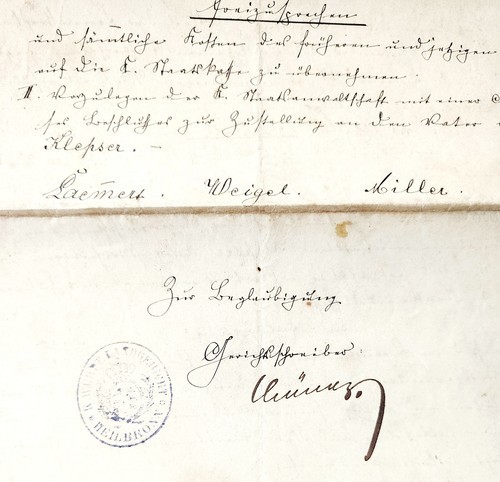 freizusprechen
und sämmtliche Kosten des früheren und jetzigen
auf die K. Staatskasse zu übernehmen.
II. Vorzulegen der K. Staatsanwaltschaft mit einer
ses Beschlusses zur Zustellung an den Vater
Klepser. —
Laemmert. Weigel. Miller.
Zur Beglaubigung
Gerichtsschreiber:
LANDGERICHT
HEILBRONN